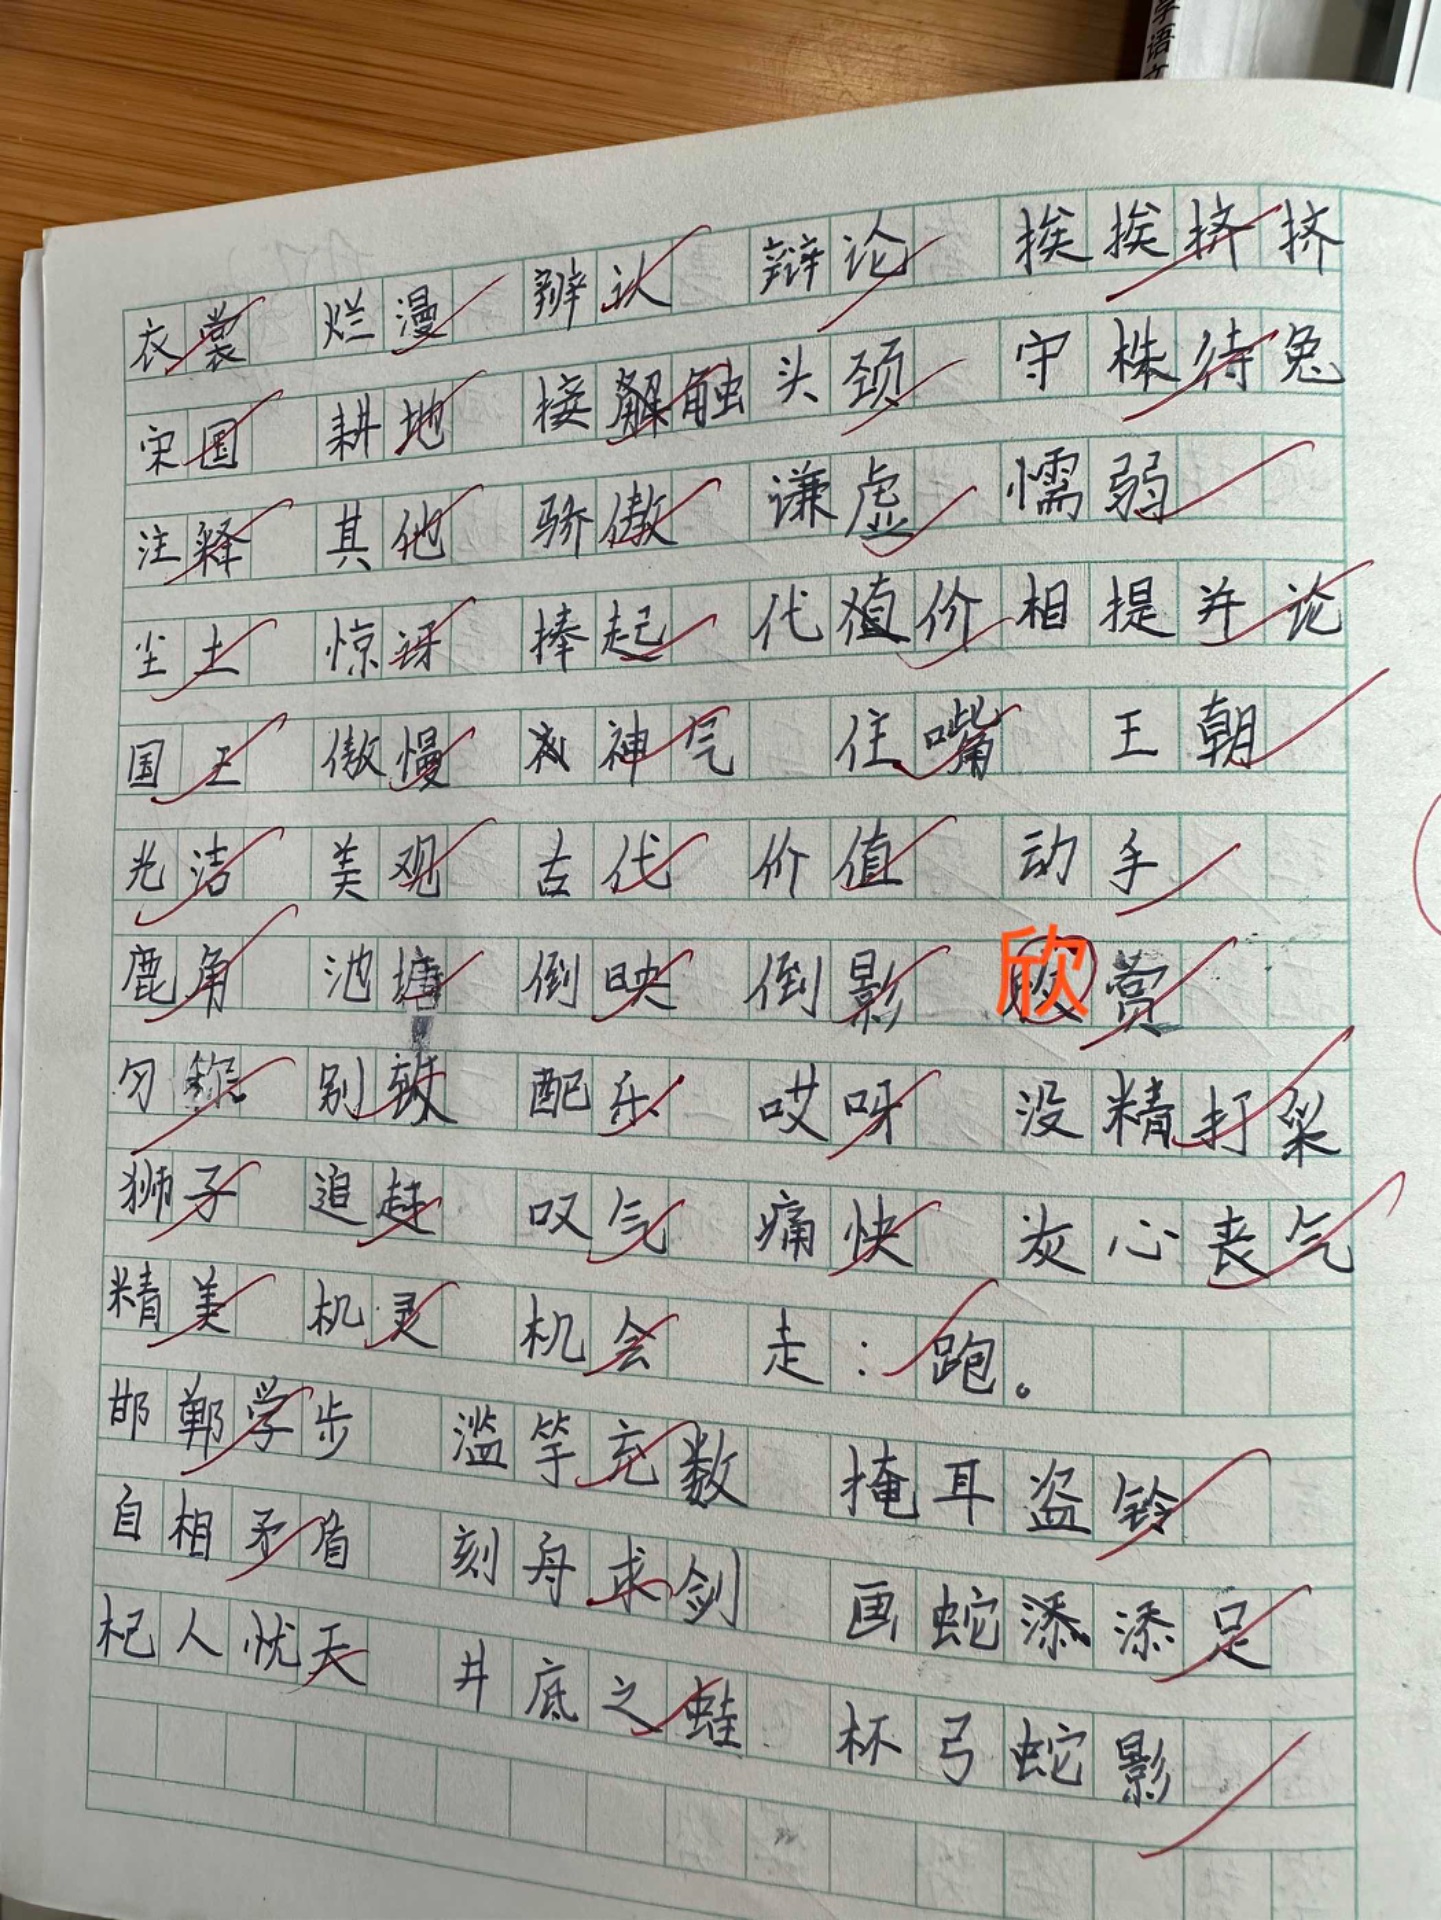 学语文
衣裳 烂漫 辨认 辩论 挨挨挤挤
宋国 耕地 接触 头颈 守株待兔
注释 其他 骄傲 谦虚 懦弱
尘土 惊讶 捧起 代价 相提并论
国王 傲慢 神气 住嘴 王朝
光洁 美观 古代 价值 动手
鹿角 池塘 倒映 倒影 欣赏
匀称 别致 配乐 哎呀 没精打采
狮子 追赶 叹气 痛快 灰心丧气
精美 机灵 机会 走：跑。
邯郸学步 滥竽充数 掩耳盗铃
自相矛盾 刻舟求剑 画蛇添添足
杞人忧天 井底之蛙 杯弓蛇影